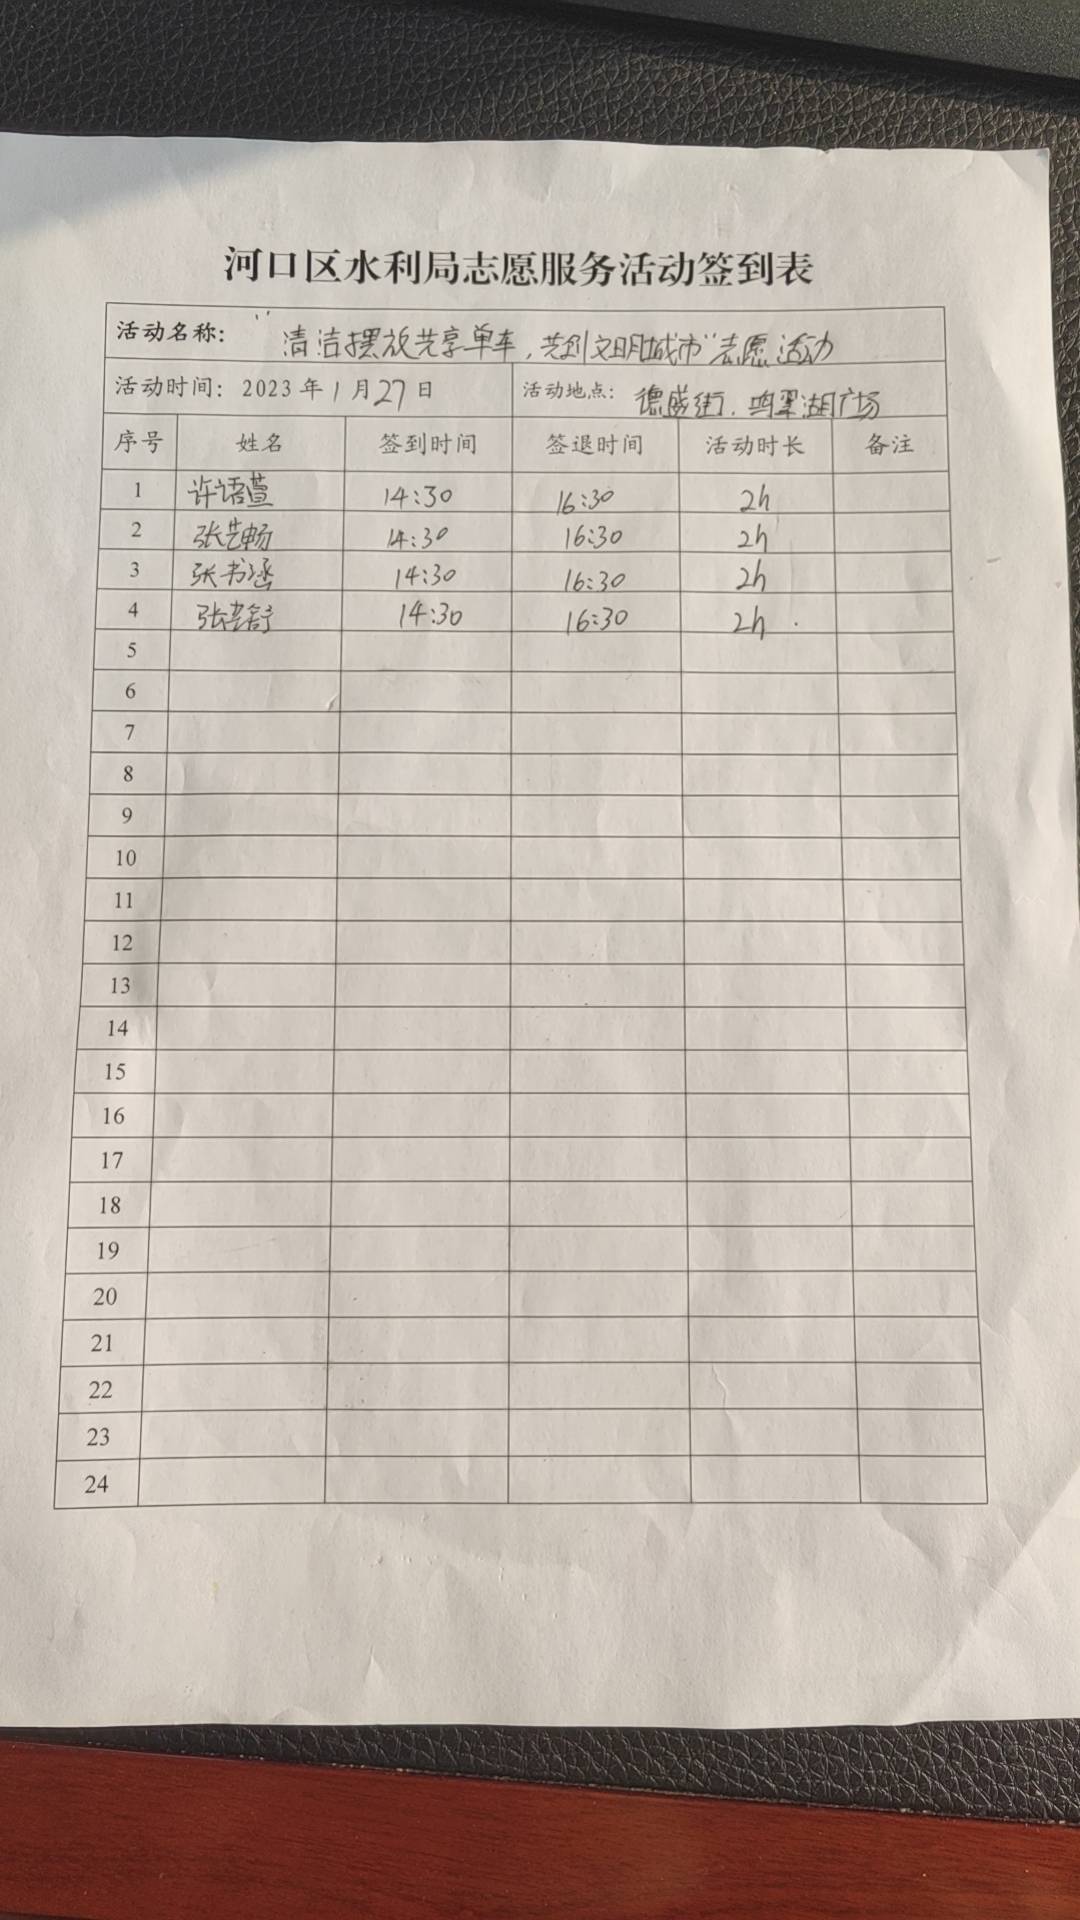 河口区水利局志愿服务活动签到表
活动名称: "清洁摆放共享单车,共创文明城市"志愿活动
活动时间: 2023年1月27日 活动地点: 德盛街.鸣翠湖广场
序号 姓名 签到时间 签退时间 活动时长 备注
1 许语萱 14:30 16:30 2h
2 张艺畅 14:30 16:30 2h
3 张书涵 14:30 16:30 2h
4 张舒 14:30 16:30 2h
5
6
7
8
9
10
11
12
13
14
15
16
17
18
19
20
21
22
23
24